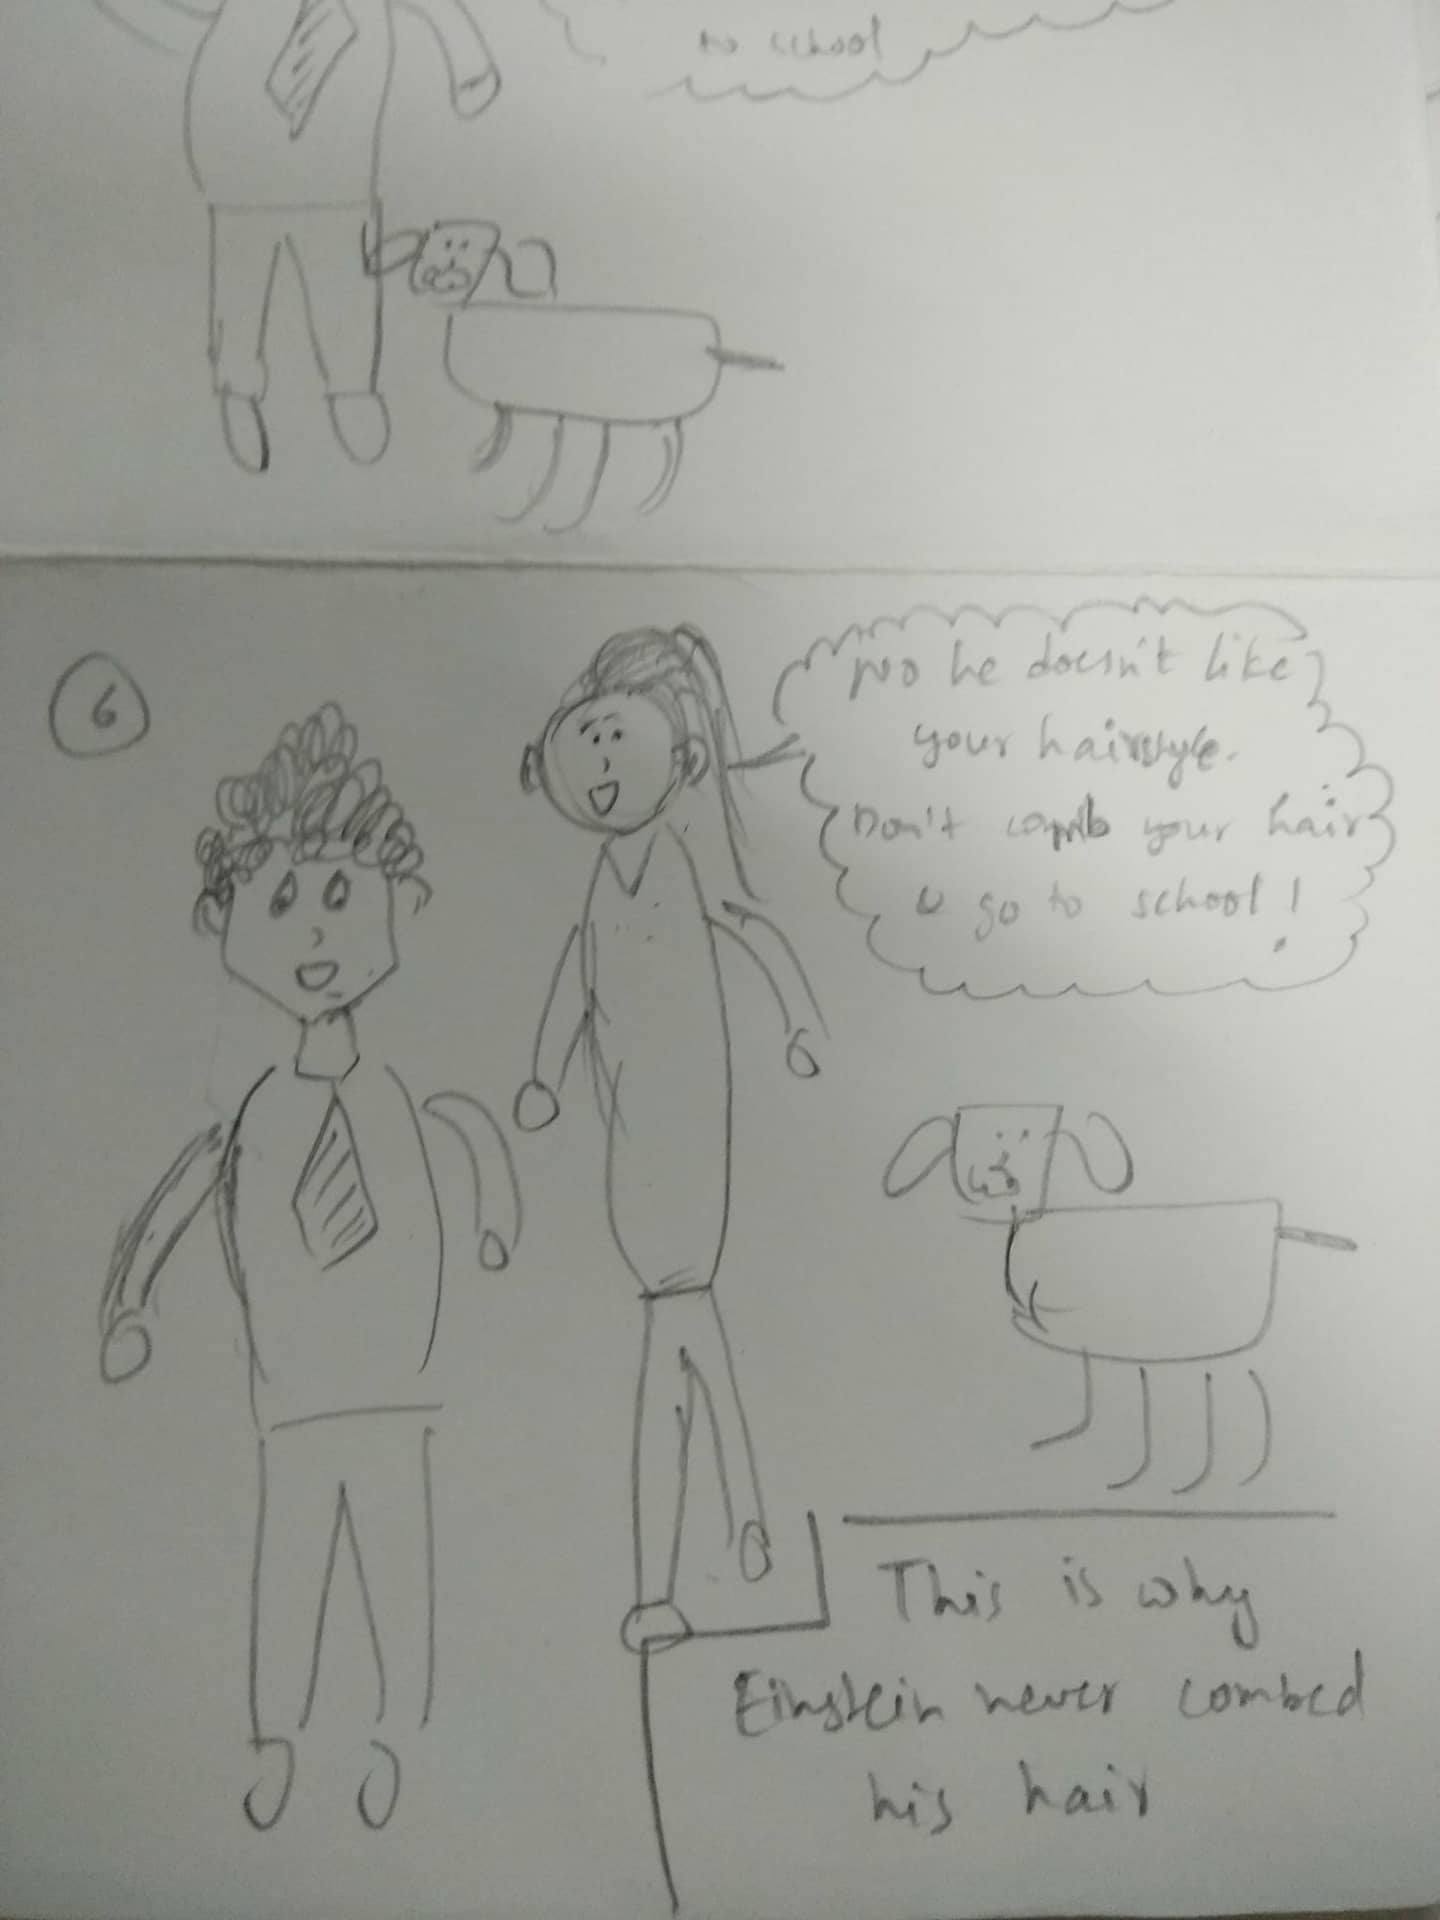 to school
6
No he doesn't like
your hairstyle.
Don't comb your hair
u go to school!
This is why
Einstein never combed
his hair